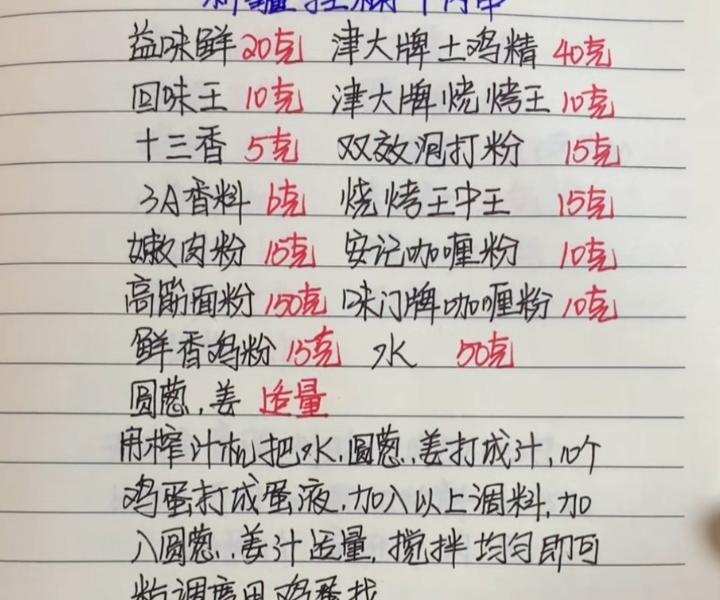 益味鲜20克 津大牌土鸡精 40克
回味王 10克 津大牌烧烤王 10克
十三香 5克 双效泡打粉 15克
3A香料 6克 烧烤王中王 15克
嫩肉粉 15克 安记咖喱粉 10克
高筋面粉 150克 味门牌咖喱粉 10克
鲜香鸡粉 15克 水 50克
圆葱.姜 适量
用榨汁机把水.圆葱.姜打成汁,10个
鸡蛋打成蛋液.加入以上调料,加
入圆葱.姜汁适量,搅拌均匀即可